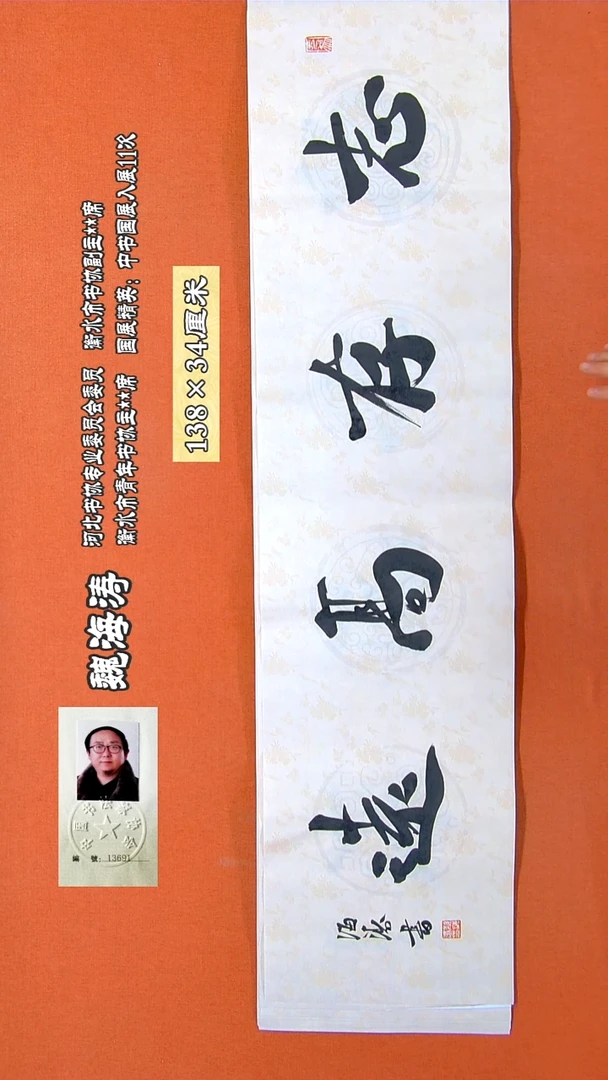 魏海涛
河北书协专业委员会委员 衡水市书协副主**席
衡水市青年书协主**席 国展精英：中书国展入展11次
138×34厘米
志存高遠
海涛書
編 號：13691